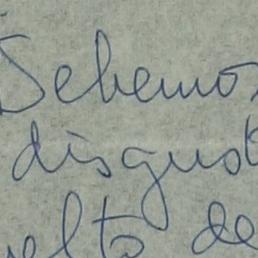 Debemos
disgust
uelto de